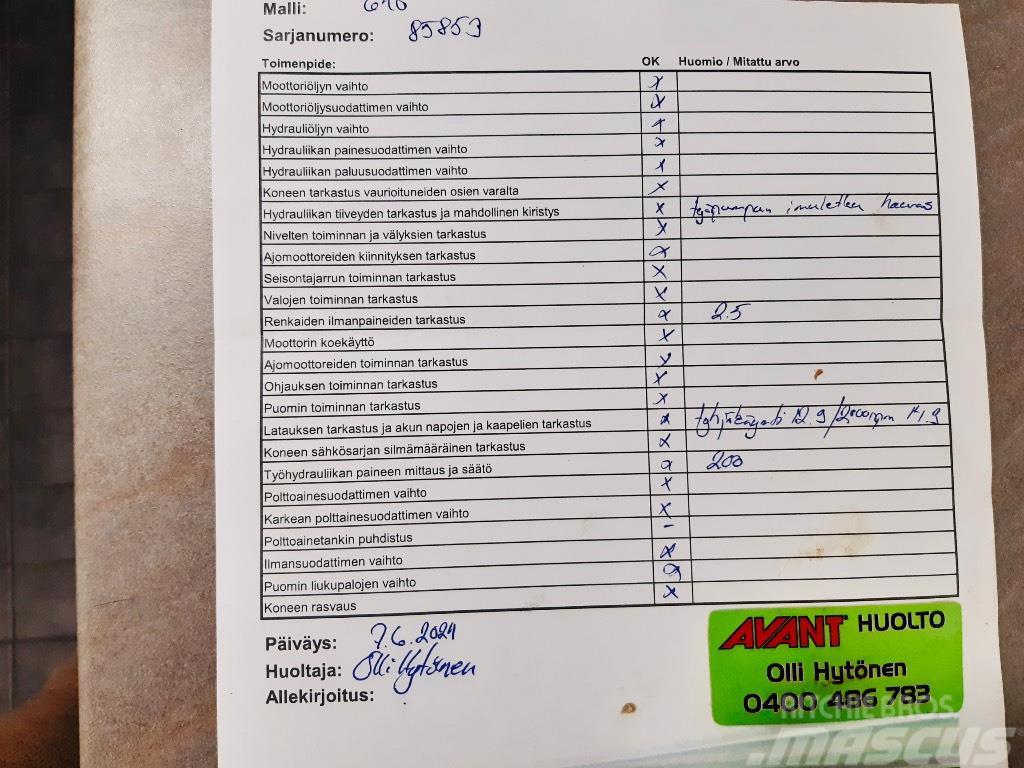 Malli: 640
Sarjanumero: 85853
Toimenpide: OK Huomio / Mitattu arvo
Moottoriöljyn vaihto x
Moottoriöljysuodattimen vaihto x
Hydrauliöljyn vaihto x
Hydrauliikan painesuodattimen vaihto x
Hydrauliikan paluusuodattimen vaihto x
Koneen tarkastus vaurioituneiden osien varalta x
Hydrauliikan tiiveyden tarkastus ja mahdollinen kiristys x työpumpun imuletku hauras
Nivelten toiminnan ja välyksien tarkastus x
Ajomoottoreiden kiinnityksen tarkastus x
Seisontajarrun toiminnan tarkastus x
Valojen toiminnan tarkastus x
Renkaiden ilmanpaineiden tarkastus x 2.5
Moottorin koekäyttö x
Ajomoottoreiden toiminnan tarkastus x
Ohjauksen toiminnan tarkastus x
Puomin toiminnan tarkastus x
Latauksen tarkastus ja akun napojen ja kaapelien tarkastus x tyhjäkäynti 12.9/2000rpm 14.9
Koneen sähkösarjan silmämääräinen tarkastus x
Työhydrauliikan paineen mittaus ja säätö x 200
Polttoainesuodattimen vaihto x
Karkean polttainesuodattimen vaihto x
Polttoainetankin puhdistus –
Ilmansuodattimen vaihto x
Puomin liukupalojen vaihto x
Koneen rasvaus x
Päiväys: 7.6.2024
Huoltaja: Olli Hytönen
Allekirjoitus:
AVANT HUOLTO
Olli Hytönen
0400 486 783
RITCHIE BROS.
mascus